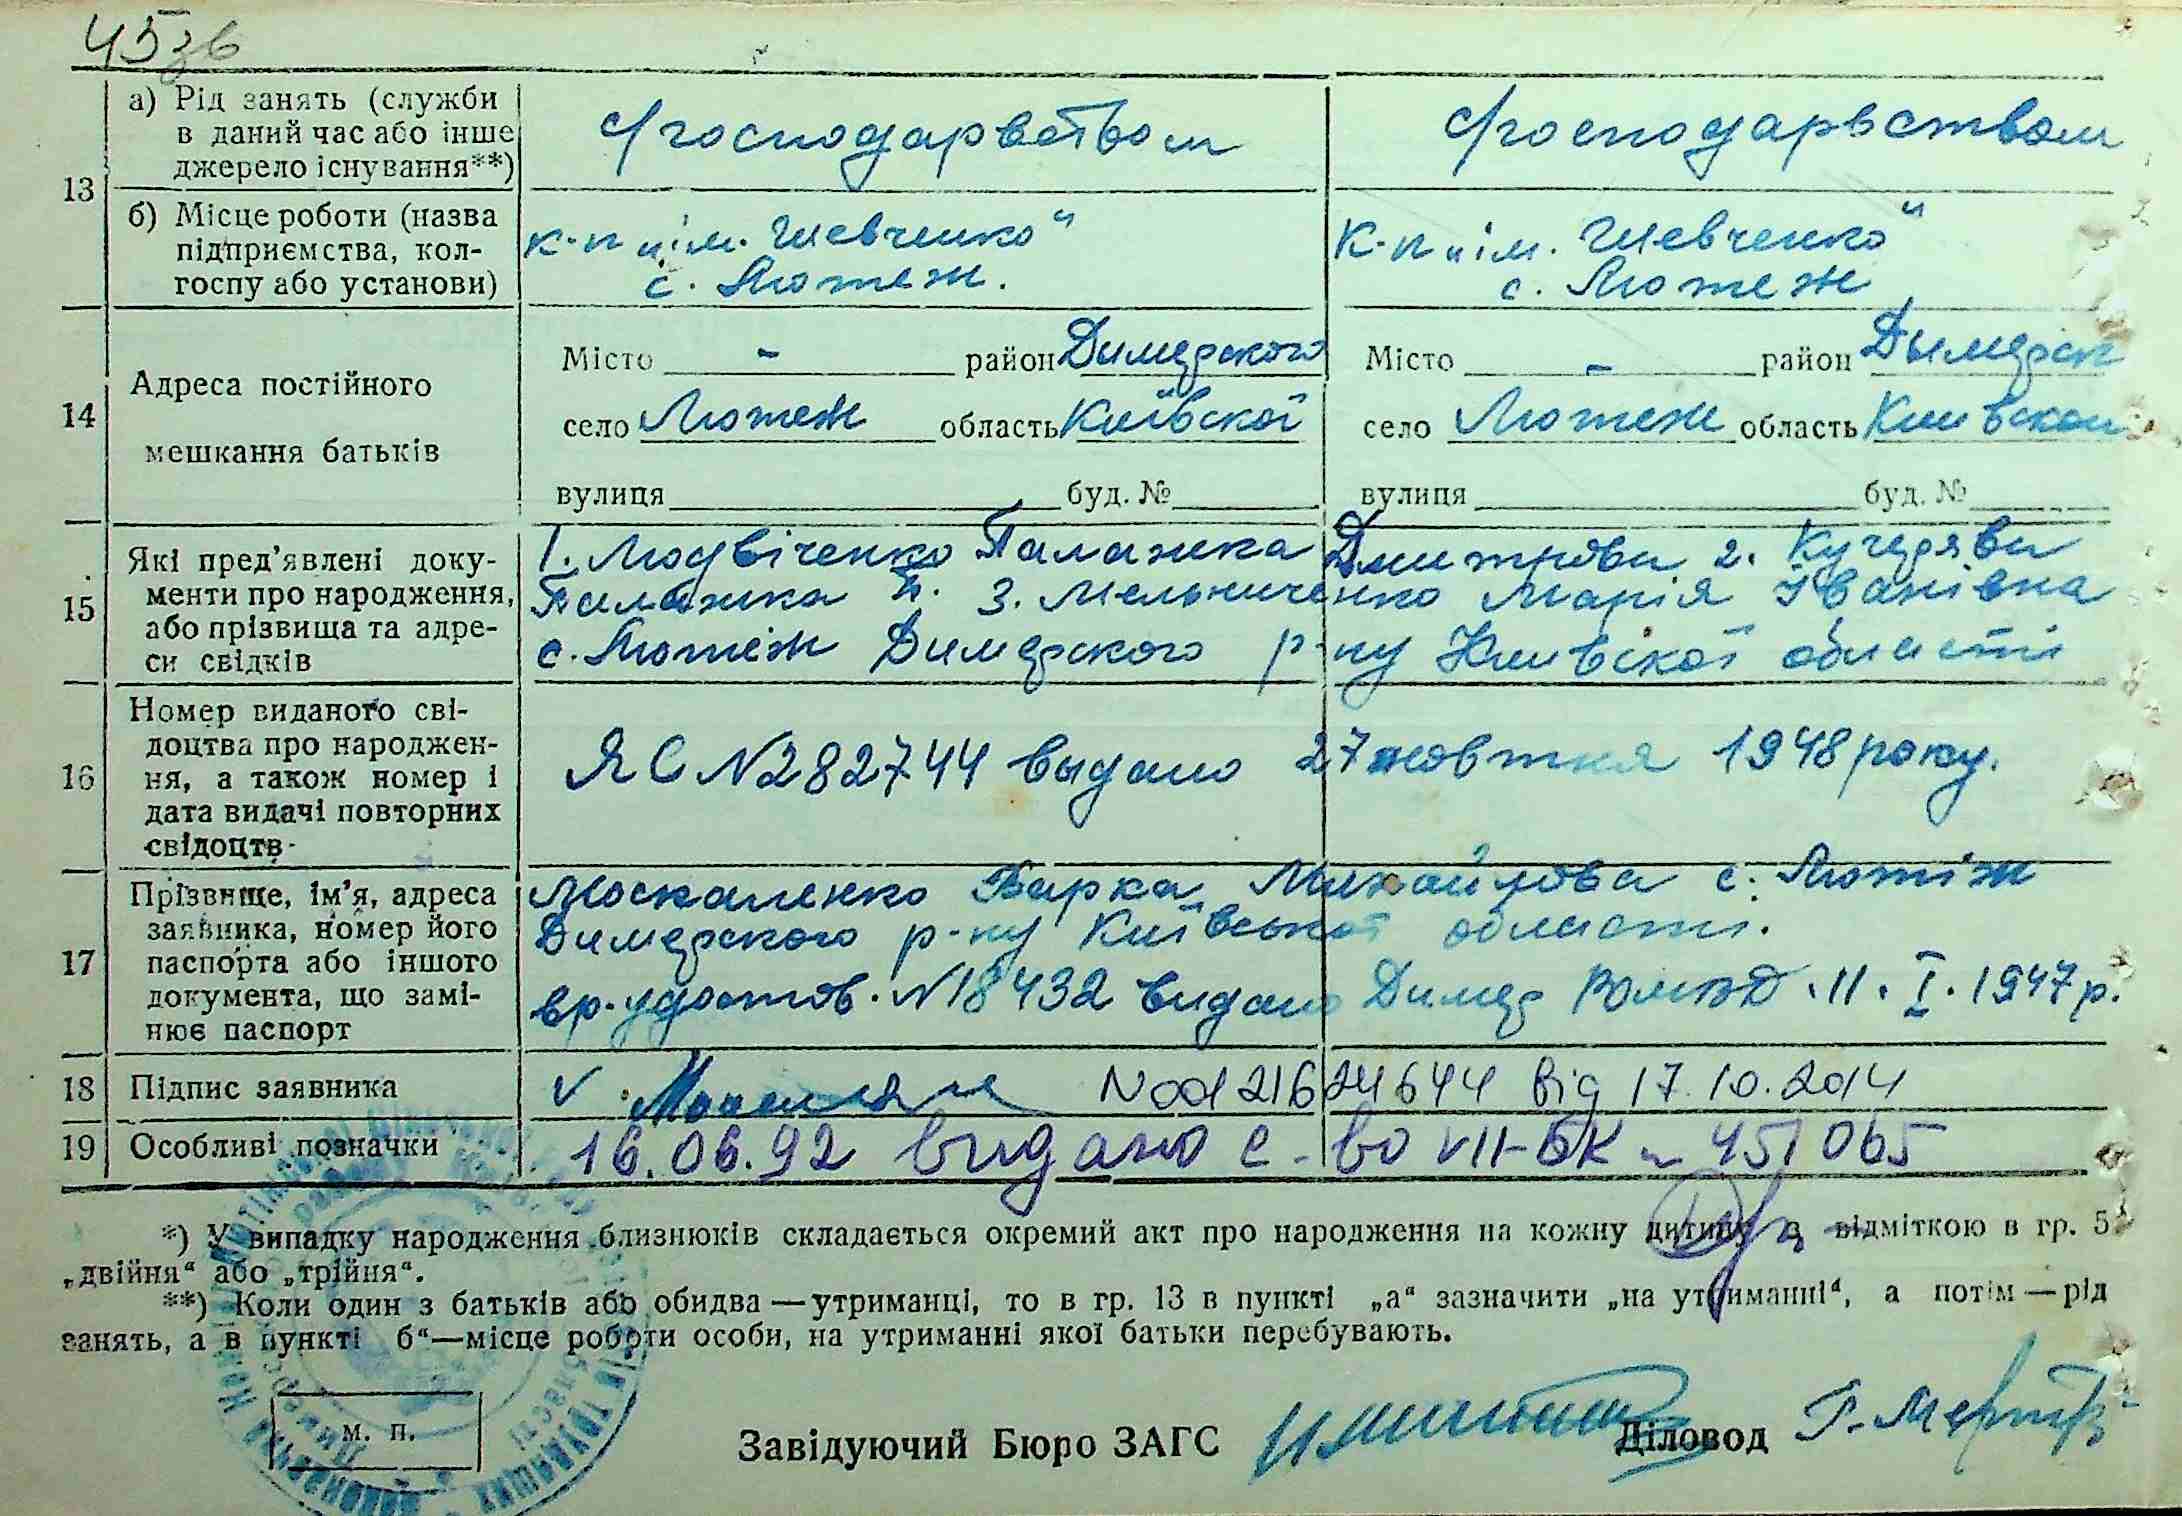 45зв
13
а) Рід занять (служби
в даний час або інше
джерело існування**)
с/господарвством
с/господарвством
б) Місце роботи (назва
підприємства, кол-
госпу або установи)
к-п „ім. Шевченко"
с. Лютеж.
к-п „ім. Шевченко"
с. Лютеж
14
Адреса постійного
мешкання батьків
Місто - район Димерского
село Лютеж область Київскої
вулиця буд. №
Місто - район Дымерск
село Лютеж область Киевской
вулиця буд. №
15
Які пред’явлені доку-
менти про народження,
або прізвища та адре-
си свідків
1. Людвіченко Палажка Дмитрови 2. Кучеряви
Палажка П. 3. Мельниченко Марія Іванівна
с. Лютеж Димерского р-ну Киівскої області
16
Номер виданого сві-
доцтва про народжен-
ня, а також номер і
дата видачі повторних
свідоцтв
ЯС №282744 выдано 27 жовтня 1948 року.
17
Прізвище, ім’я, адреса
заявника, номер його
паспорта або іншого
документа, що замі-
нює паспорт
Москаленко Варка Михайлова с. Лютіж
Димерского р-ну Київської области.
вр. удостов. №18432 видано Димер РОМВД .11. I. 1947 р.
18
Підпис заявника
V N00121624644 від 17.10.2014
19
Особливі позначки
16.06.92 видано с-во VII-БК № 451065
*) У випадку народження близнюків складається окремий акт про народження на кожну дитину з відміткою в гр. 5
„двійня“ або „трійня“.
**) Коли один з батьків або обидва — утриманці, то в гр. 13 в пункті „а“ зазначити „на утриманні“, а потім — рід
занять, а в пункті б“—місце роботи особи, на утриманні якої батьки перебувають.
м. п.
Завідуючий Бюро ЗАГС
Діловод